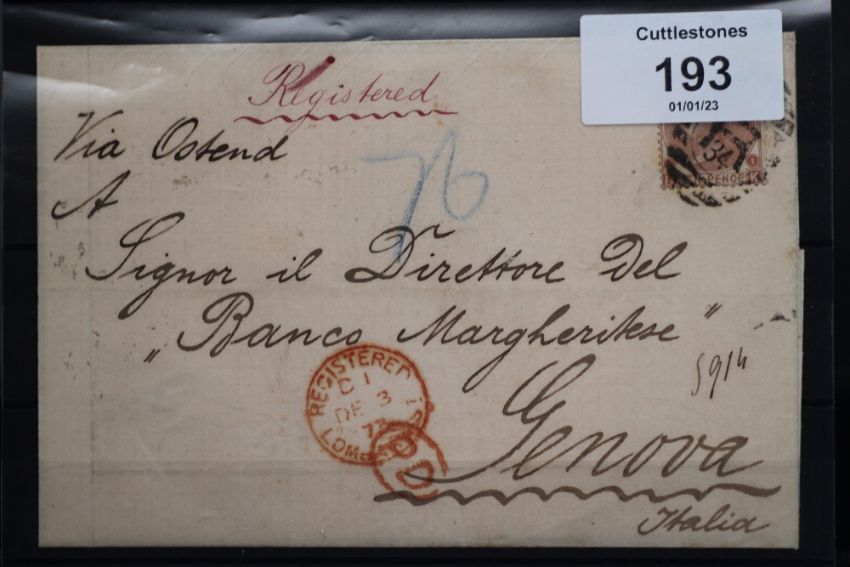 Cuttlestones
193
01/01/23
Registered
Via Ostend
76
A
Signor il Direttore Del
„Banco Margheritese"
5914
Genova
Italia
REGISTERED
D 1
DE 3
LOMB
PD
34
PENCE
1
K